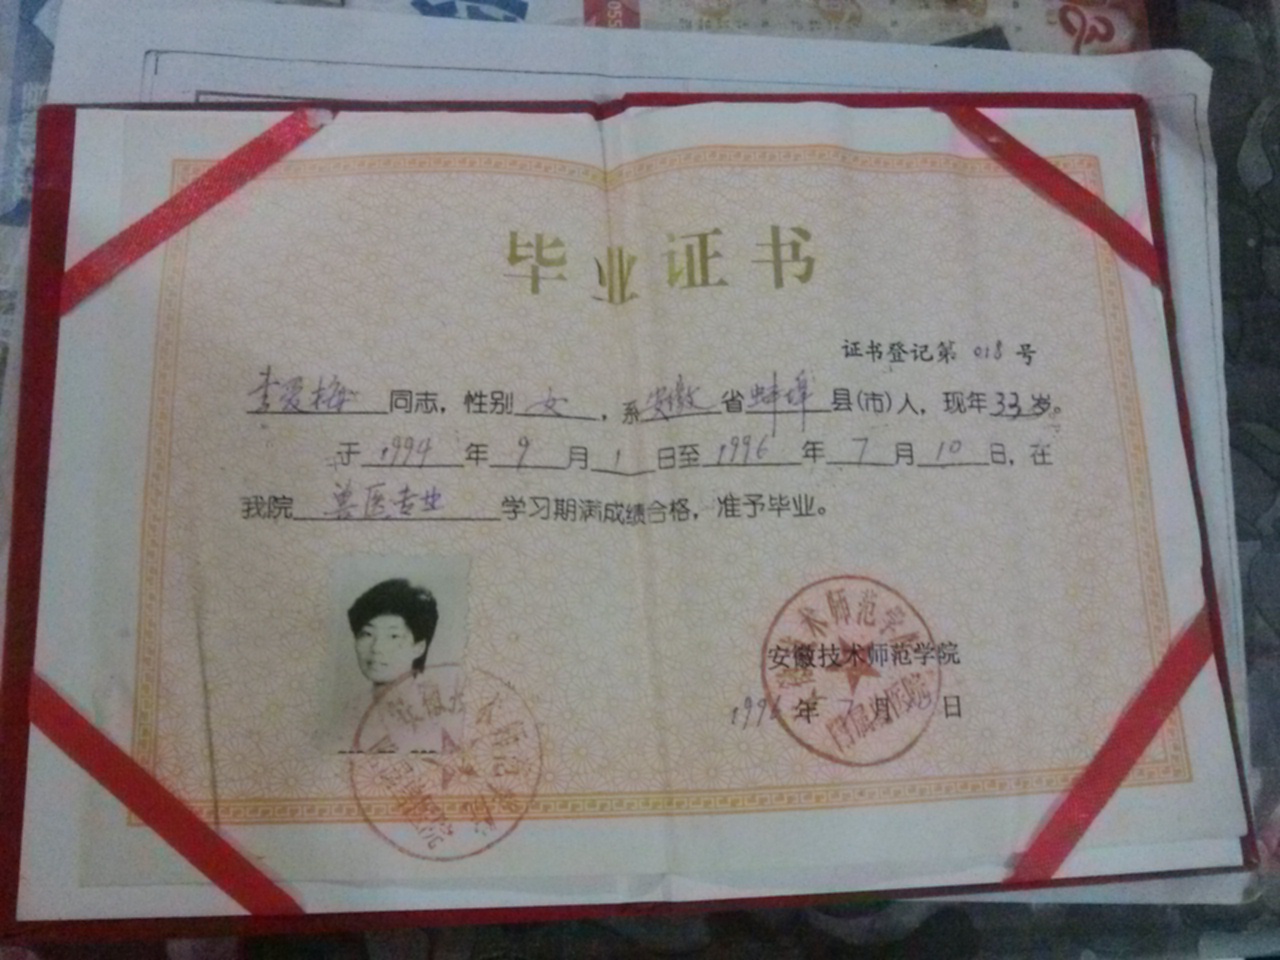 毕业证书
证书登记第 018 号
李爱梅 同志，性别 女 ，系 安徽 省 蚌埠 县(市)人，现年 33 岁。
于 1994 年 9 月 1 日至 1996 年 7 月 10 日，在
我院 兽医专业 学习期满成绩合格，准予毕业。
安徽技术师范学院
1996 年 7 月 日